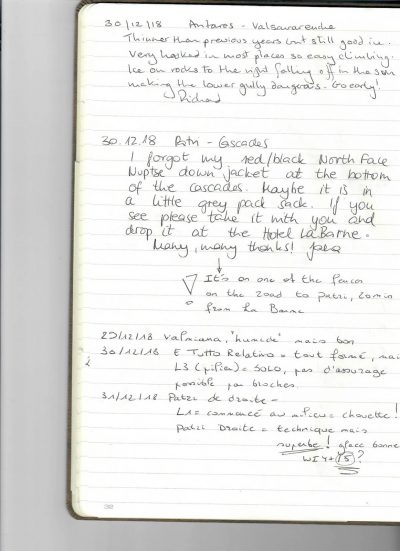 30/12/18 Antares - Valsavarenche
Thinner than previous years but still good ice.
Very hacked in most places so easy climbing.
Ice on rocks to the right falling off in the sun
making the lower gully dangerous. Go early!
Richard
30.12.18 Patri - Cascades
I forgot my red/black North Face
Nuptse down jacket at the bottom
of the cascades. Maybe it is in
a little grey pack sack. If you
see please take it with you and
drop it at the Hotel La Barme.
Many, many thanks!
It's on one of the fences
on the road to Patri, 20min
from La Barme
29/12/18 Valmiana, "humide" mais bon
30/12/18 E Tutto Relativo = tout formé, mai
L3 (pilier) = SOLO, pas d'assurage
possible par broches.
31/12/18 Patri de droite -
L1 = commencé au milieu = chouette!
Patri Droite = technique mais
superbe! glace bonne
WI4+(5)?
32